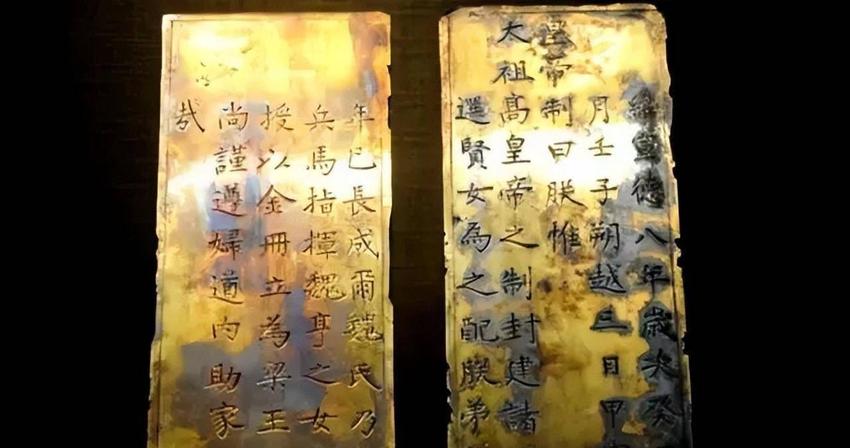 維宣德八年歲次癸
月壬子朔越三日甲
皇帝制曰朕惟
太祖高皇帝之制封建諸
選賢女為之配朕弟
年已長成爾魏氏乃
兵馬指揮魏亨之女
授以金冊立為梁王
尚謹遵婦道內助家
哉